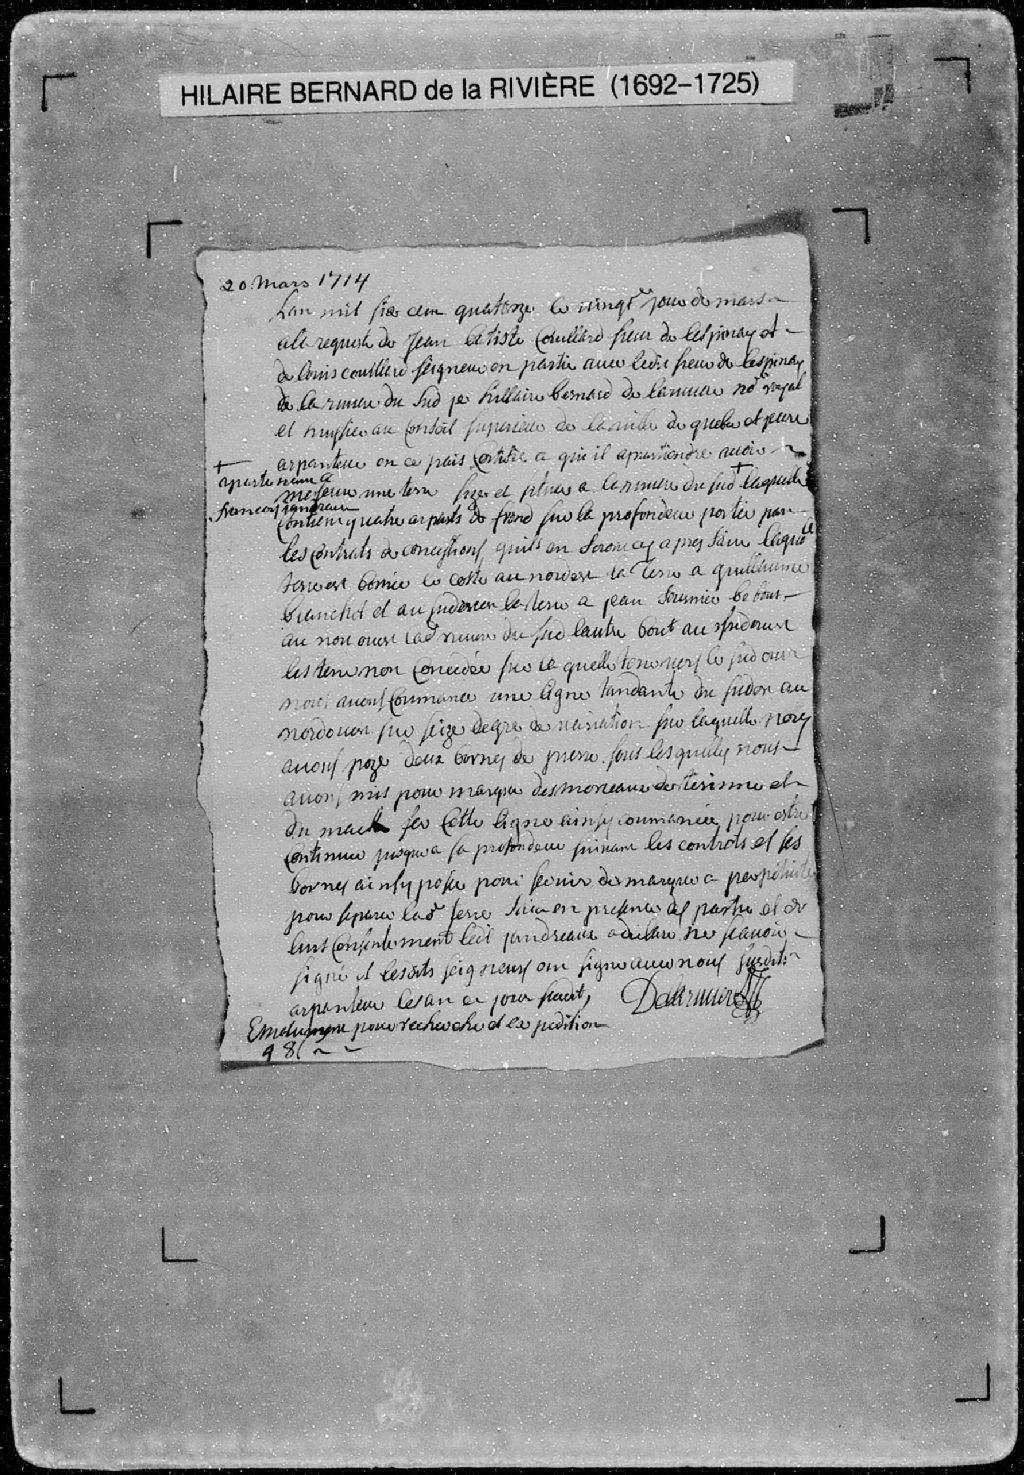 HILAIRE BERNARD de la RIVIÈRE (1692-1725)
20 Mars 1714
Lan mil sept cen quatorze le vingt jour de mars
ala requeste de Jean batiste Couillard sieur de Lespinay et
de Louis couillard seigneur en partie avec ledit sieur de Lespinay
de la riviere du Sud je hillaire bernard de lariviere no.re royal
et huissier au Conseil superieur de la ville de quebec et juré
arpanteur en ce païs Certifie a qui il apartiendra avoir
+
apartenant a
francois jandreau
mesuré une terre size et situee a la riviere du sud + laquelle
contien quatre arpants de frond sur la profondeur portée par
les Contrats de concessions quils en feront cy apres faire laquelle
terre est bornée le costé au nordest la terre a guillaume
blanchet et au sudouest la terre a jean fournier le bout
au norouest lad riviere du sud lautre bout au sudouest
les terre non concedée sur laquelle terre vers le sudouest
nous avons Commancé une ligne tandante du sudest au
nordouest sur seize degré de variation sur laquelle nous
avons pozé deux bornes de pierre sous lesquelles nous
avons mis pour marque des morceaux de terinne et
du machefer Cette ligne ainsy commancée pour estre
Continuée jusqua sa profondeur suivant les contrats et ses
bornes ainsy posée pour servir de marque a perpetuité
pour separer lad terre faict en presence des partie et de
leurs Consentement ledit jandreaux a declaré ne scavoir
signé et lesdits seigneurs ont signé avec nous susdits
arpanteur les an et jour susdit,
Delariviere
pour recherche et expedition
98